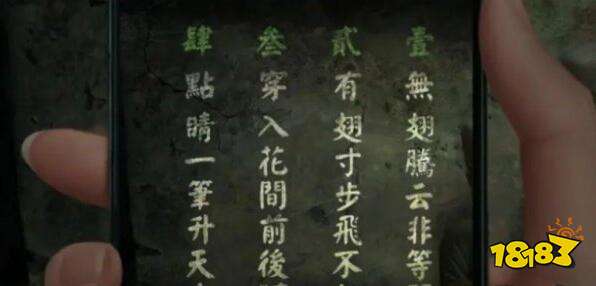 壹
無翅騰云非等
貳
有翅寸步飛不
叁
穿入花間前後
肆
點睛一筆升天
18183